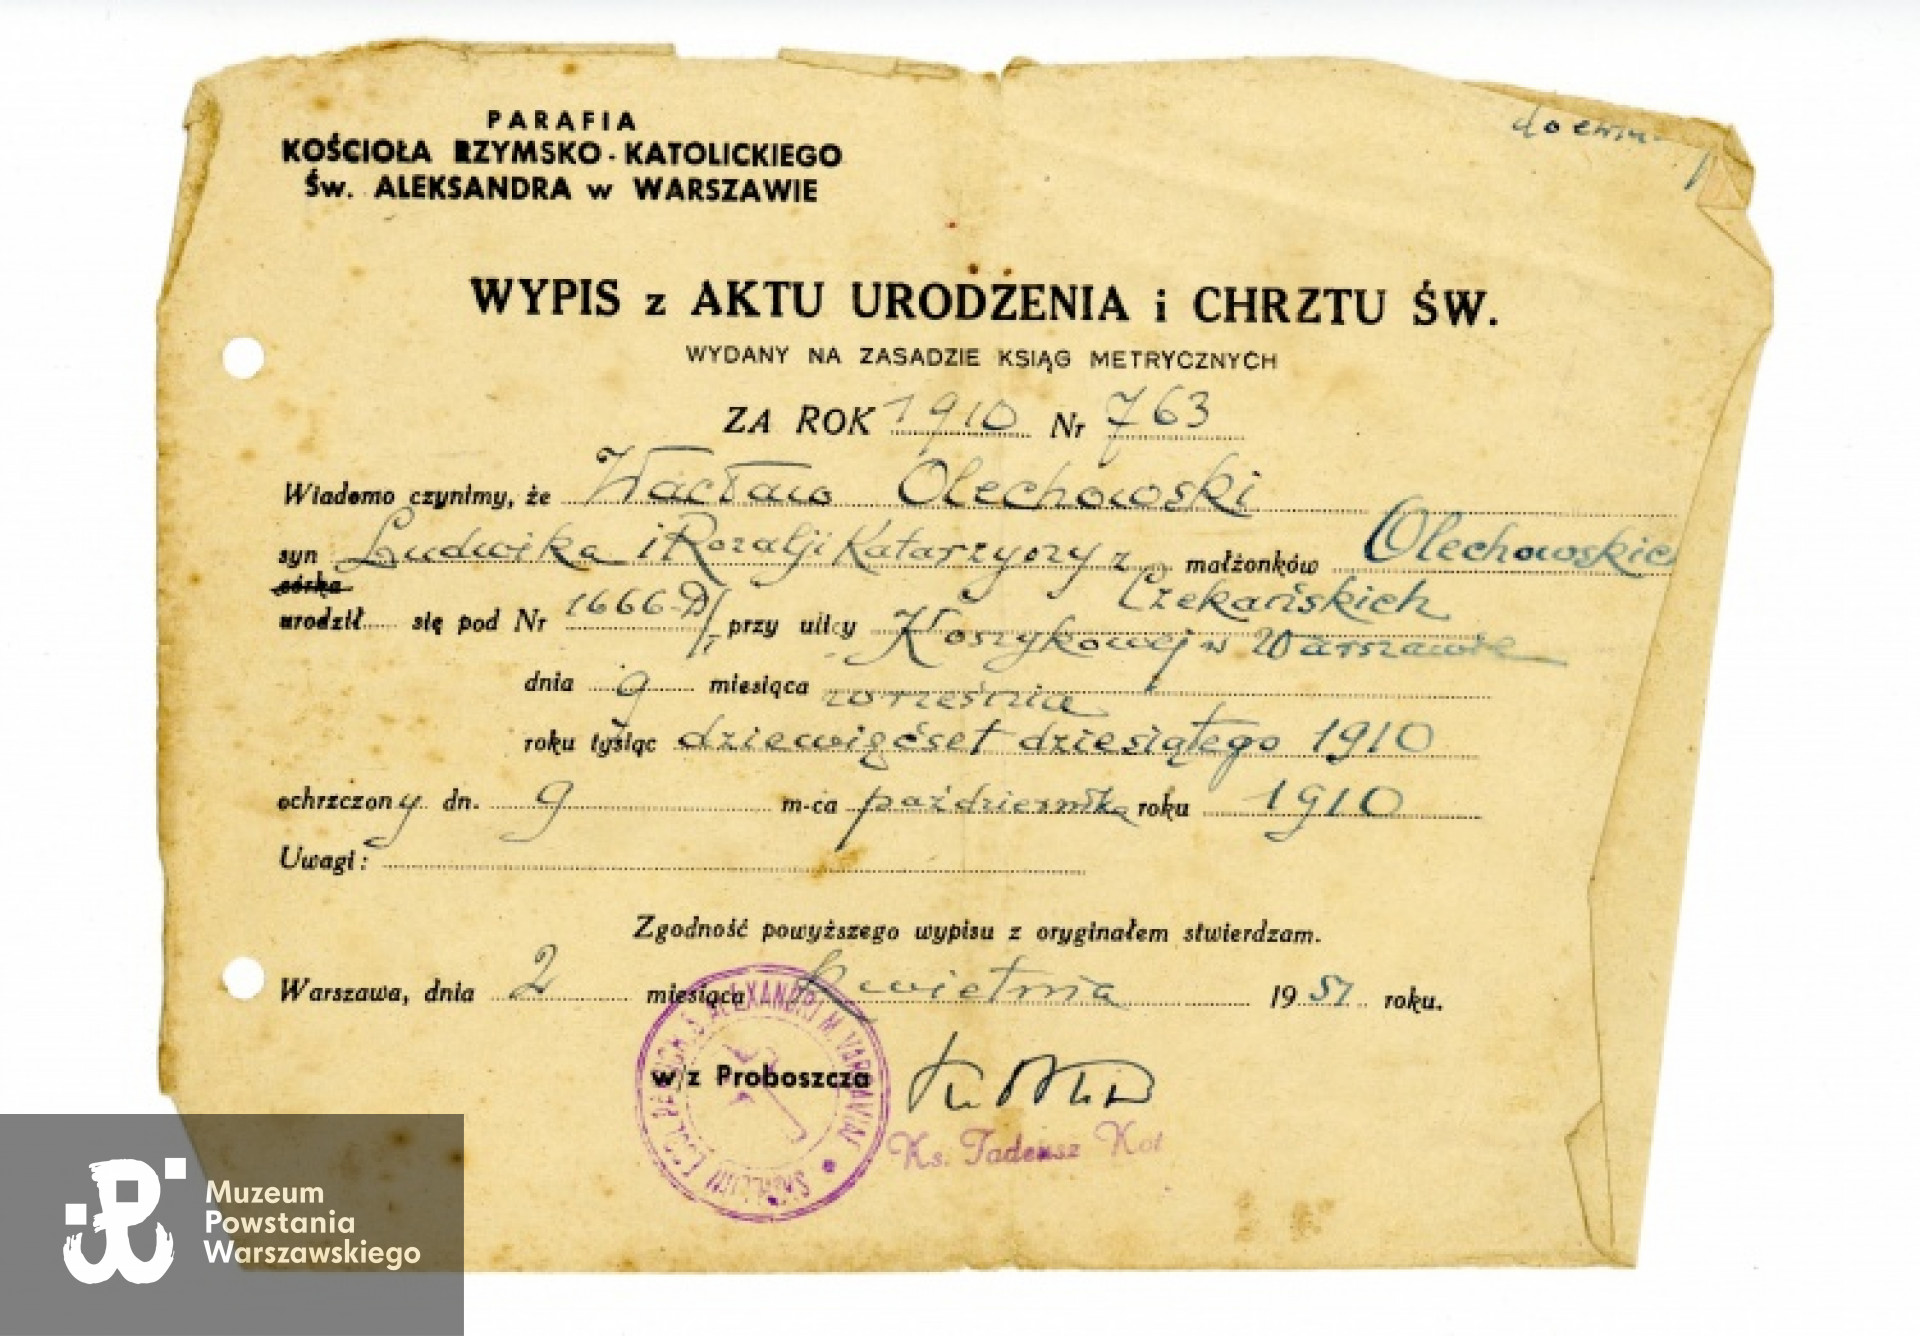 PARAFIA
KOŚCIOŁA RZYMSKO-KATOLICKIEGO
Św. ALEKSANDRA w WARSZAWIE
WYPIS z AKTU URODZENIA i CHRZTU ŚW.
WYDANY NA ZASADZIE KSIĄG METRYCZNYCH
ZA ROK 1910 Nr 763
Wiadomo czynimy, że Wacław Olechowski
syn Ludwika i Rozalji Katarzyny z małżonków Olechowskich
córka Czekańskich
urodził się pod Nr 1666 przy ulicy Koszykowej w Warszawie
dnia 9 miesiąca września
roku tysiąc dziewięćset dziesiątego 1910
ochrzczony dn. 9 m-ca października roku 1910
Uwagi:
Zgodność powyższego wypisu z oryginałem stwierdzam.
Warszawa, dnia 2 miesiąca kwietnia 1951 roku.
w/z Proboszcza
Ks. Tadeusz Kot
Muzeum
Powstania
Warszawskiego